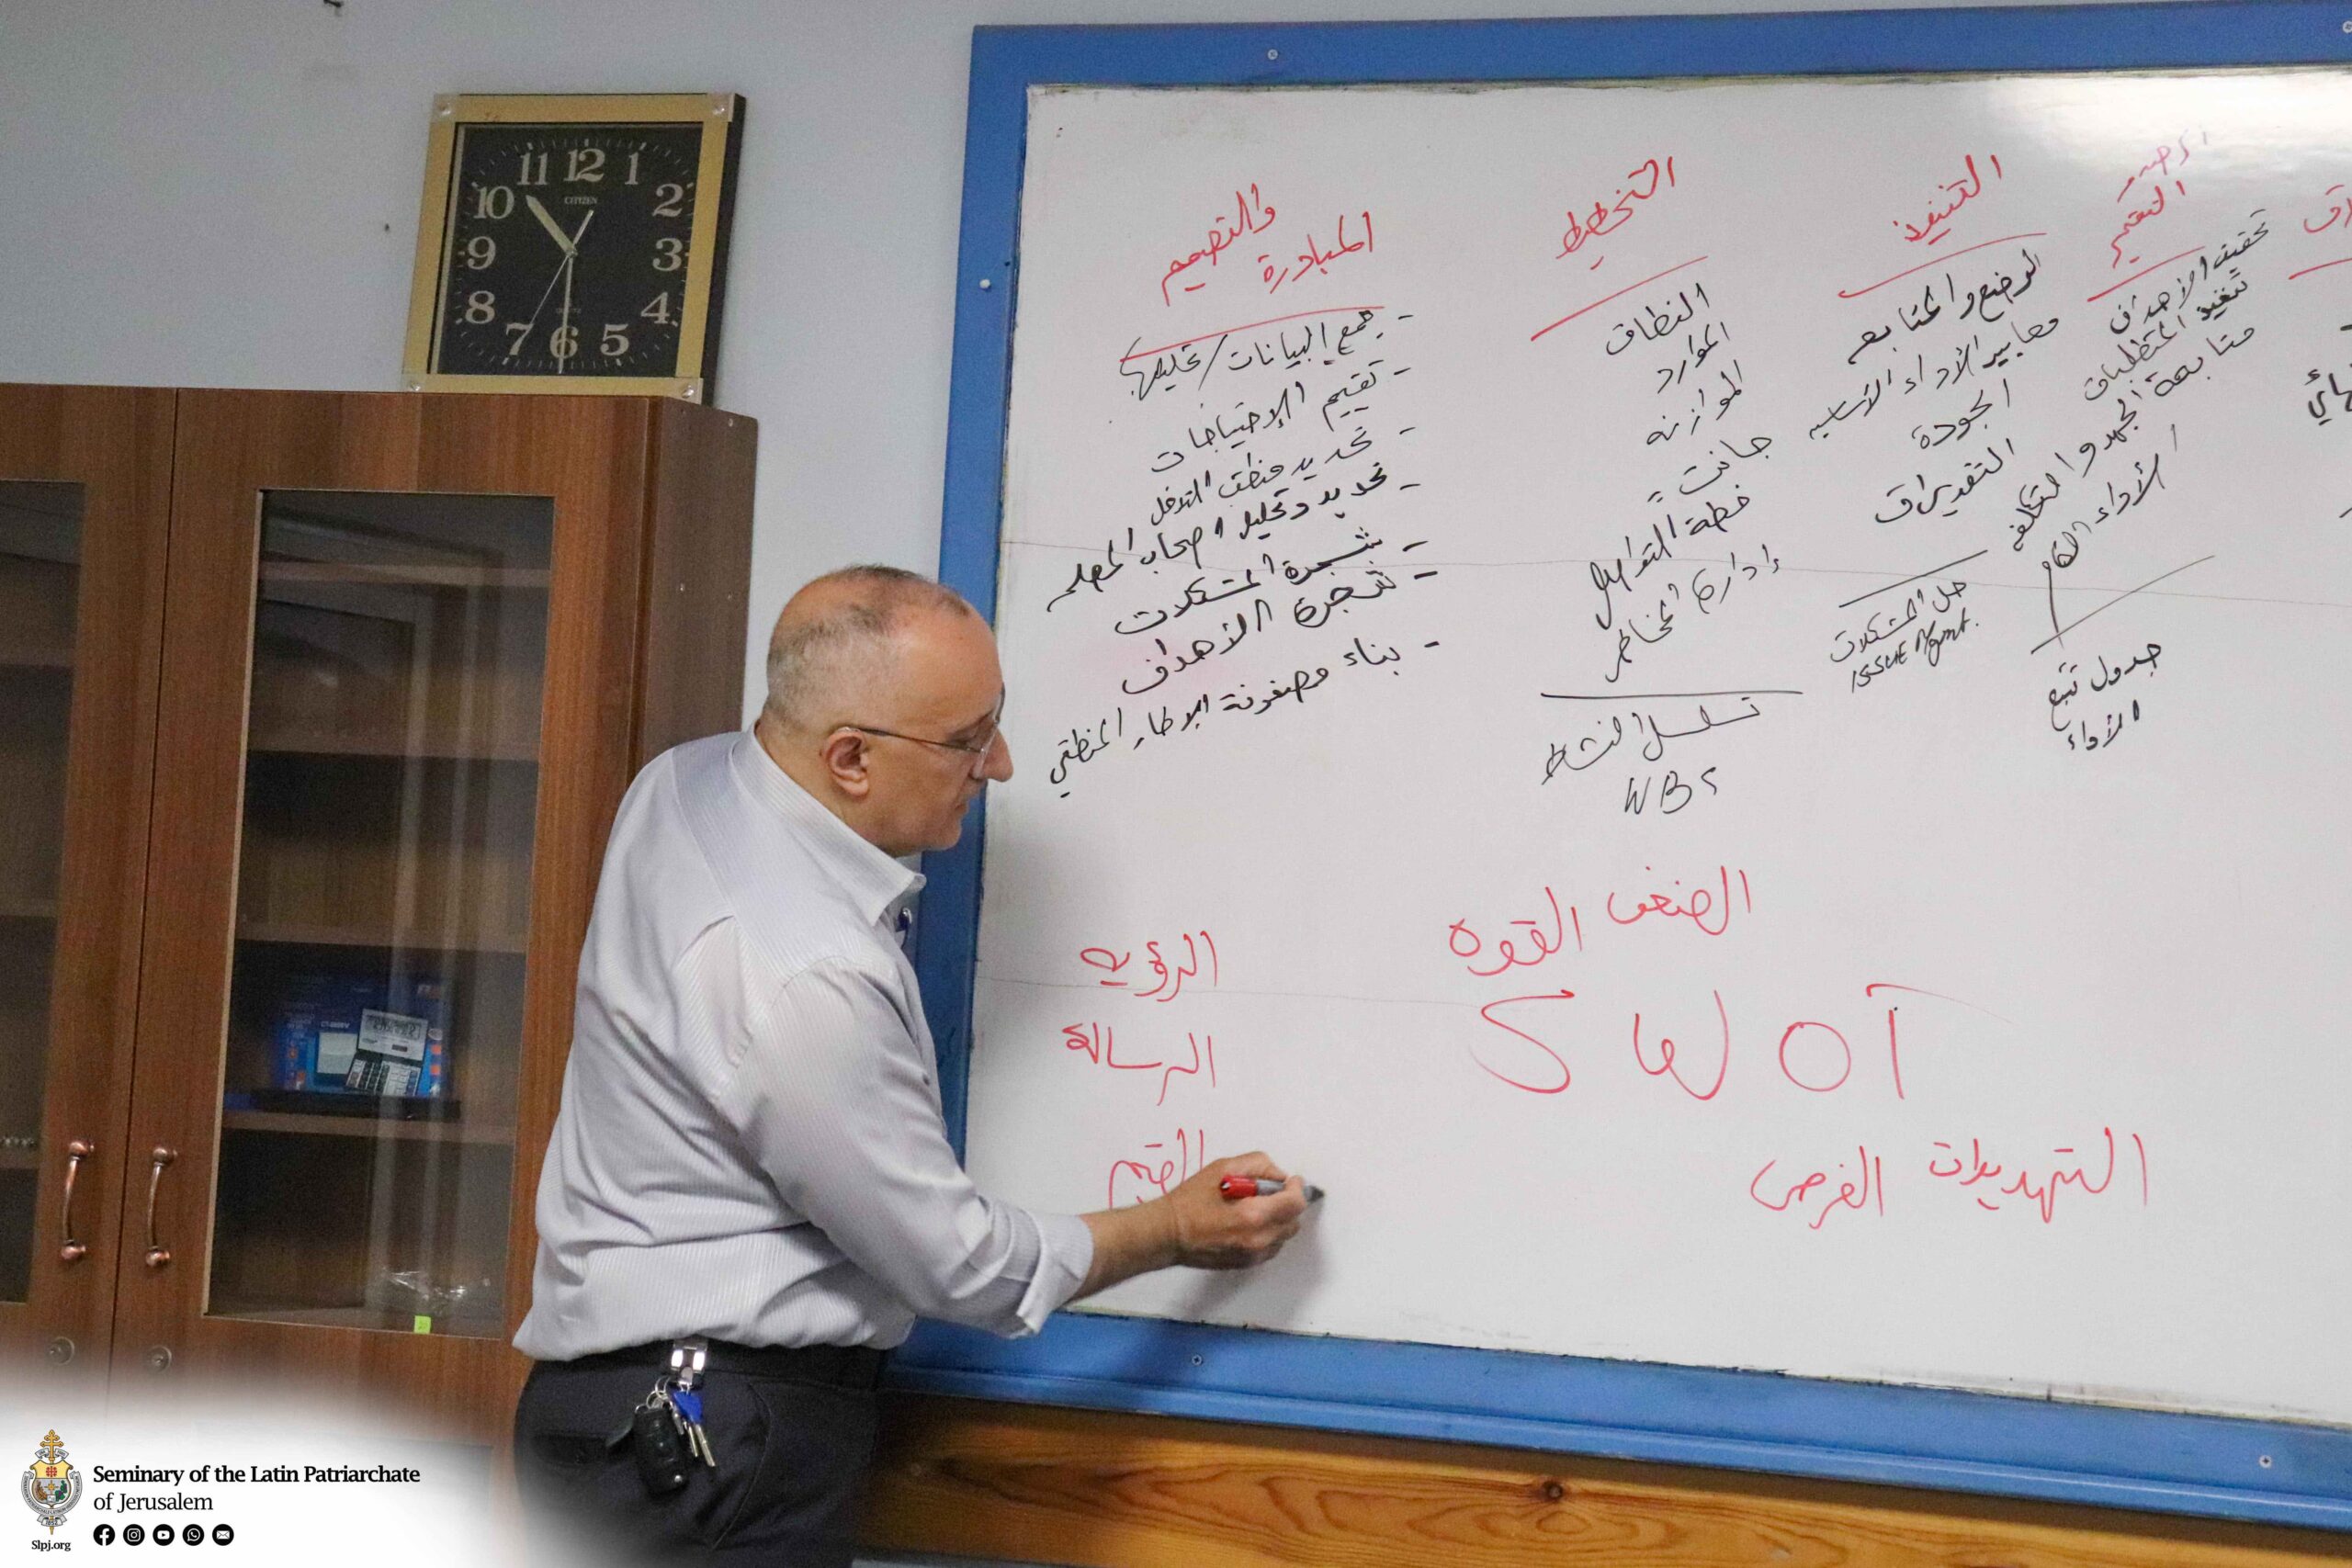 المبادرة
والتصميم
- جمع البيانات / تحليلها
- تقييم الإحتياجات
- تحديد منطق التدخل
- تحديد وتحليل اصحاب المصلحه
- شجرة المشكلات
- شجرة الأهداف
- بناء مصفوفة الإطار المنطقي
التخطيط
النطاق
الموارد
الموازنه
جانت
خطة التواصل
إدارة المخاطر
تسلسل النشاط
WBS
التنفيذ
الوضع والمتابعه
معايير الأداء الأساسيه
الجودة
التقديرات
حل المشكلات
ISSUE Mgmt.
تحقيق الأهداف
تنفيذ المتطلبات
متابعة الجهد والتكلفه
الأداء العام
جدول تتبع
الأداء
الضعف القوه
SWOT
التهديدات الفرص
الرؤيه
الرسالة
القيم
11 12 1
10 2
CITIZEN
9 3
8 4
7 6 5
Seminary of the Latin Patriarchate
of Jerusalem
Slpj.org